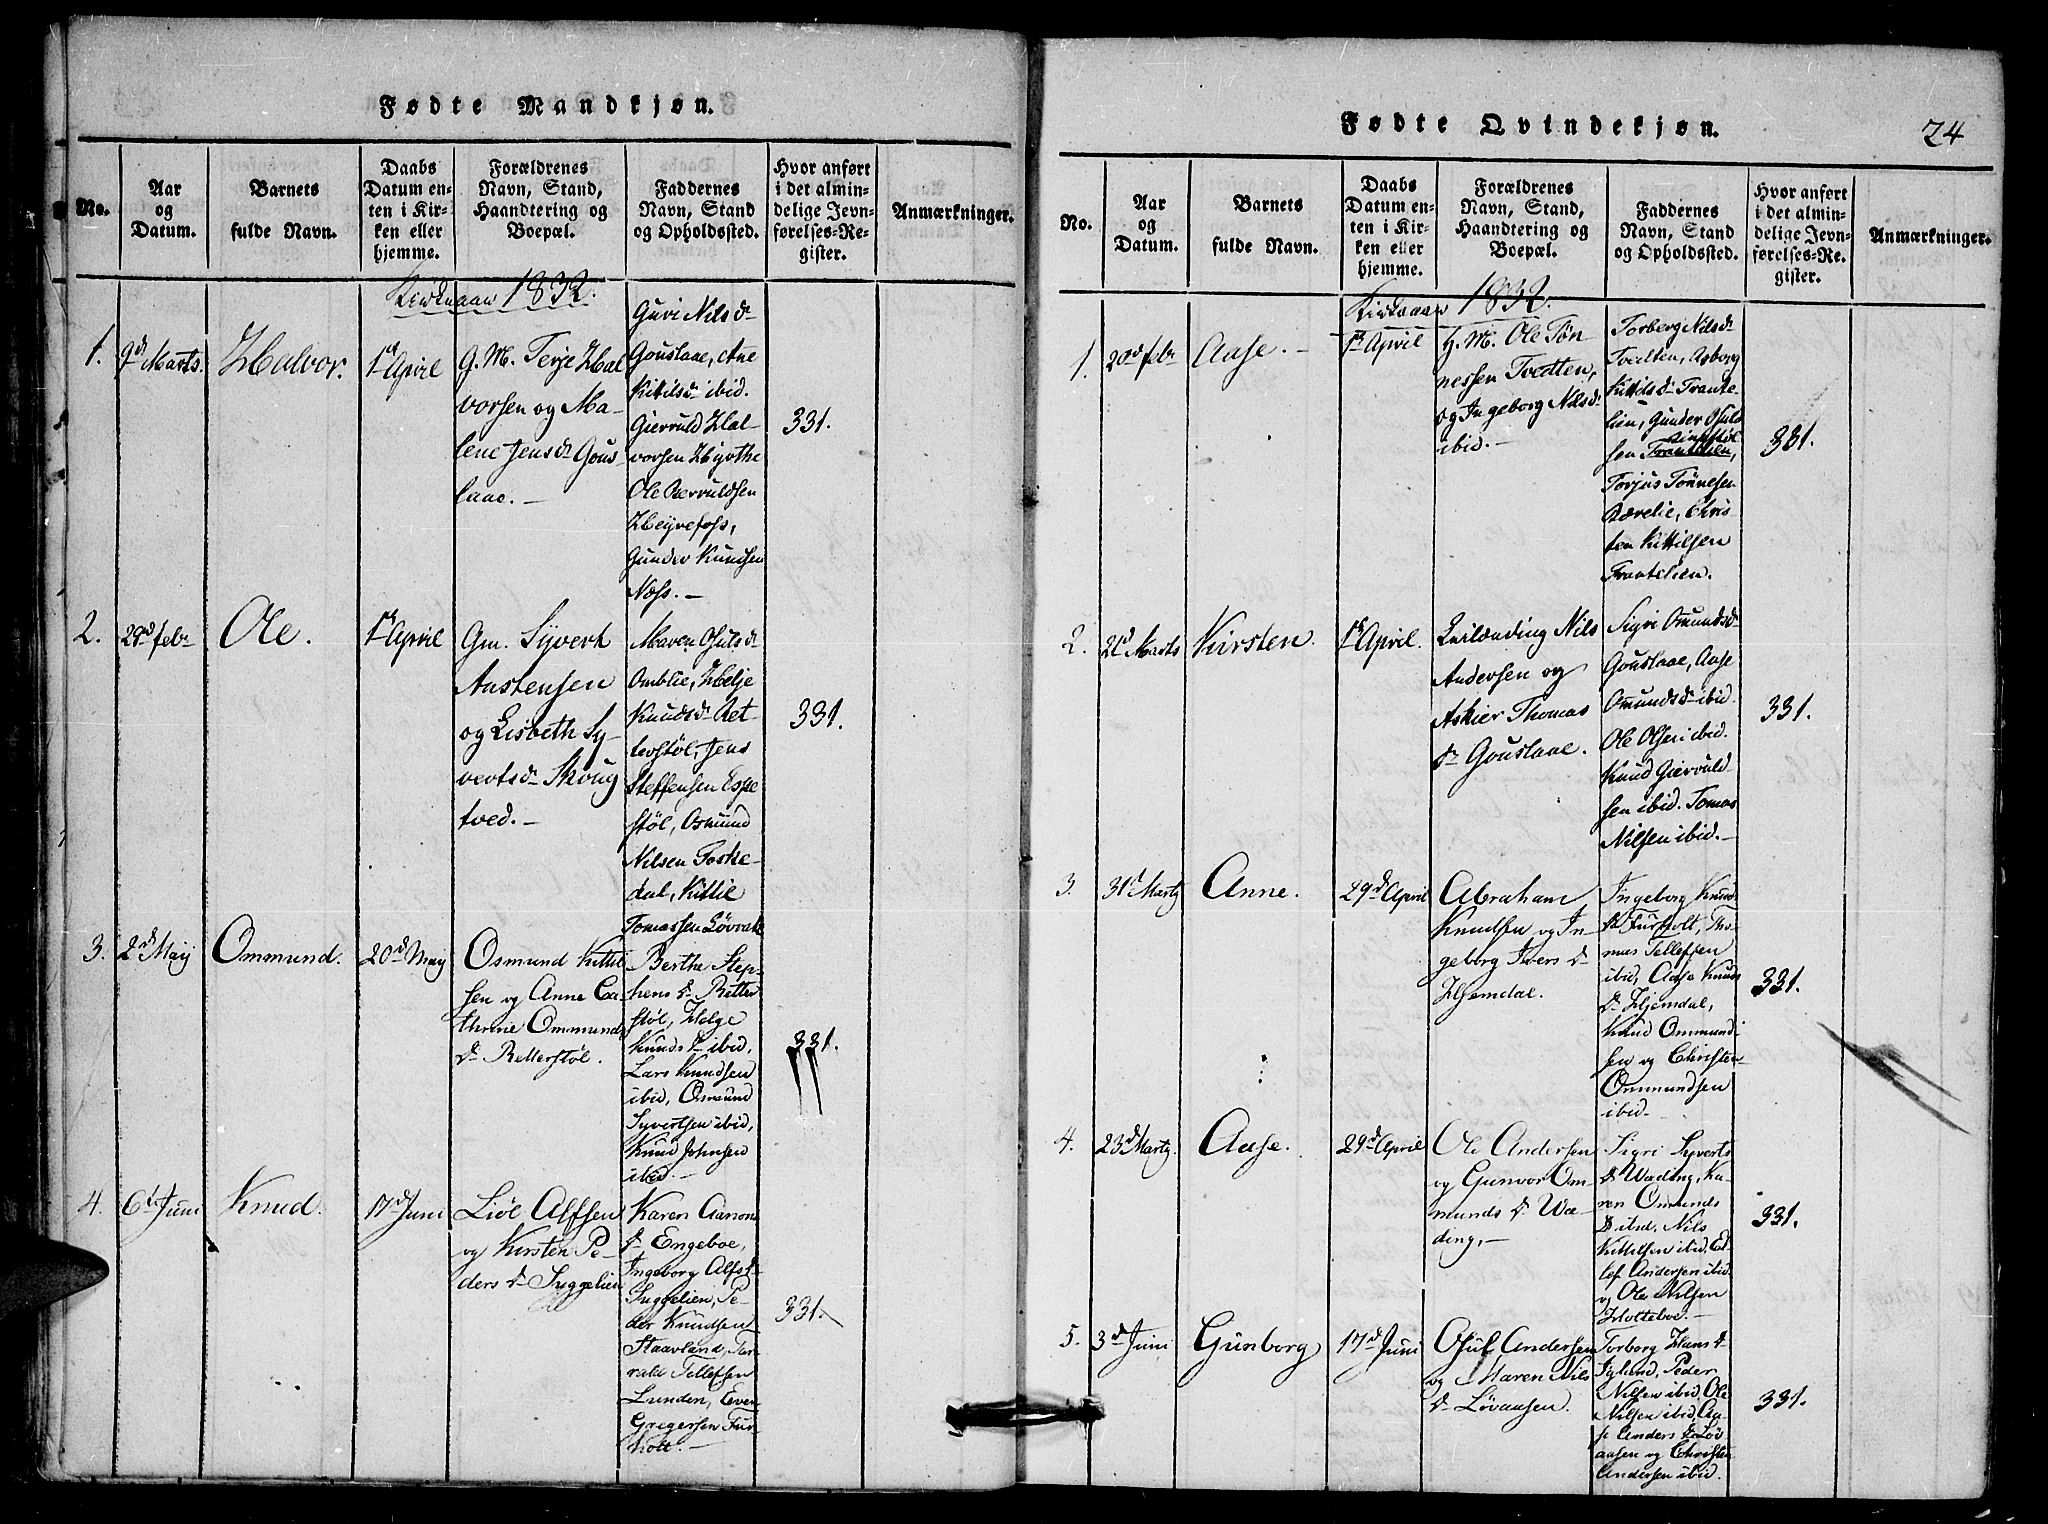 Fødte Mandkjøn.
No.
Aar
og
Datum.
Barnets
fulde Navn.
Daabs
Datum en-
ten i Kir-
ken eller
hjemme.
Forældrenes
Navn, Stand,
Haandtering og
Boepæl.
Faddernes
Navn, Stand
og Opholdssted.
Hvor anført
i det almin-
delige Jevn-
førelses-Re-
gister.
Anmærkninger.
1832.
1.
9d Marts.
Halvor.
1ste April
G. M. Terje Hal
vorsen og Ma-
lene Jens dr Gous-
laae.
Guri Nils dr
Gouslaae, Ane
Kitils dr ibid.
Giervuld Hal-
vorsen
Ole
Heyrefoss,
Gunder Knudsen
Næss.
331.
2.
29d febr
Ole.
1ste April
Gm. Syvert
Aastensen
og Lisbeth Sy-
verts dr Skoug
tved.
Maren Osuls dr
Omblie, Helje
Knuds dr Ret-
terstøl, Jens
Steffensen Espe
støl, Osmund
Nilsen Foske-
dal, Kittil
Tomassen
331.
3.
2d Maij
Ommund.
20d Maij
Osmund Kittel
sen og Anne Ca-
thrine Ommund
dr Retterstøl.
Berthe Step-
hens dr Retter
støl, Helge
Knuds dr ibid,
Lars Knudsen
ibid, Osmund
Syvertsen ibid,
Knud Johnsen
ibid.
331.
4.
6t Juni
Knud.
17d Juni
Liøl Alfsen
og Kirsten Pe-
ders dr Suggelien
Karen Aanon
dr Engeboe,
Ingeborg Alfs dr
Suggelien, Pe-
der Knudsen
Staavland, Tar-
rald Tellefsen
Lunden, Even
Gregersen Fur-
holt.
331.
Fødte Qvindekjøn.
24
No.
Aar
og
Datum.
Barnets
fulde Navn.
Daabs
Datum en-
ten i Kir-
ken eller
hjemme.
Forældrenes
Navn, Stand,
Haandtering og
Boepæl.
Faddernes
Navn, Stand
og Opholdssted.
Hvor anført
i det almin-
delige Jevn-
førelses-Re-
gister.
Anmærkninger.
1832.
1.
20d febr
Aase.
1ste April
G. M. Ole Tøn
nessen Tvedten,
og Ingeborg Nils dr
ibid.
Torberg Nils dr
Tvedten, Asborg
Kittils dr Trante-
lien, Gunder Osuld
sen Trantelien,
Torjus Tønnesen
Bærelie, Chris-
ten Kittilsen
Trantelien.
331.
2.
21d Marts
Kirsten.
1ste April.
Nils
Andersen og
Askier Thomas
dr Gouslaae.
Sigri Omunds dr
Gouslaae, Aase
Omunds dr ibid.
Ole Olsen ibid.
Knud Giervuld-
sen ibid. Tomas
Nilsen ibid.
331.
3.
31t Marty
Anne.
29d April
Abraham
Knudsen og In-
geborg Ivers dr
Hjemdal.
Ingeborg Knud
dr Furholt, Tho-
mas Tellefsen
ibid, Aase Knuds
dr Hjemdal,
Knud Ommund
sen og Christen
Ommundsen
ibid.
331.
4.
23d Marty
Aase.
29d April
Ole Andersen
og Gunvor Om-
munds dr Wæ-
ding,
Sigri Syverts
dr Wæding, Ka-
ren Omunds
dr ibid, Nils
Kittilsen ibid, El-
lef Andersen ibid
og Ole Nilsen
Holteboe.
331.
5.
3d Juni
Gunborg
17d Juni
Osul Andersen
og Maren Nils
dr Løvaasen.
Torborg Hans dr
Iglund, Peder
Nilsen ibid, Ole
Nilsen ibid, Aa-
se Anders dr Løv
aasen og Christen
Andersen ibid.
331.